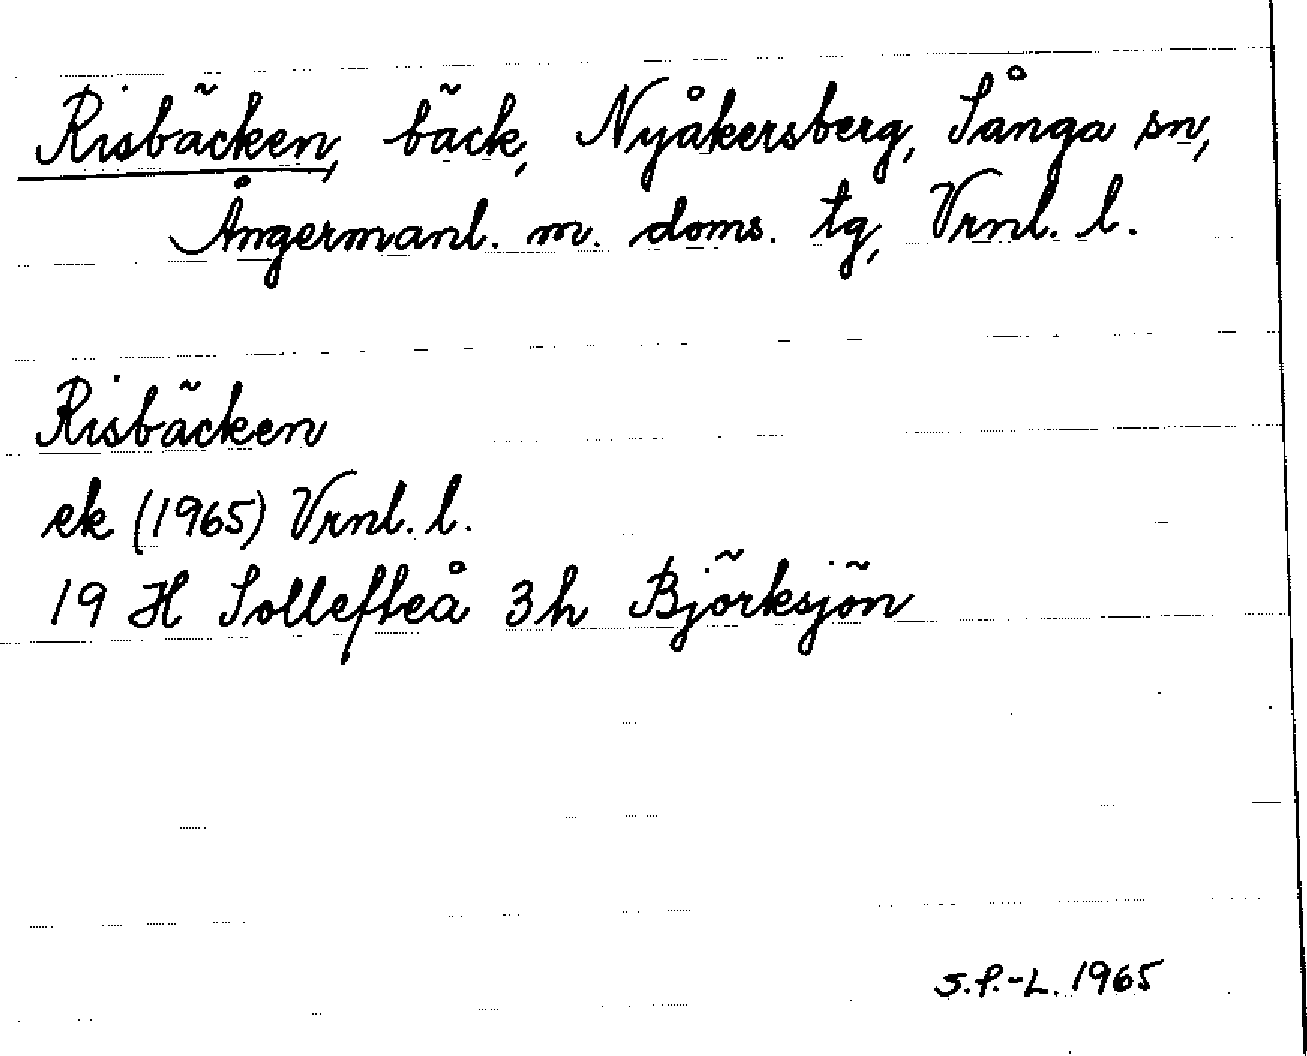 Risbäcken, bäck, Nyåkersberg, Sånga sn,
Ångermanl. m. doms. tg, Vrnl. l.
Risbäcken
ek (1965) Vrnl. l.
19 H Sollefteå 3h Björksjön
S.P.-L. 1965